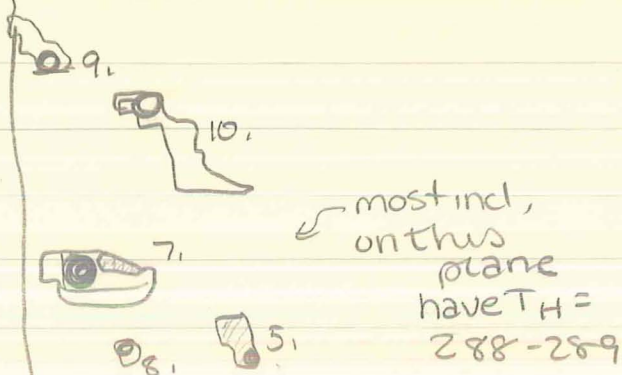 9.
10.
most incl,
on this
plane
have TH =
288-289
7.
8.
5.